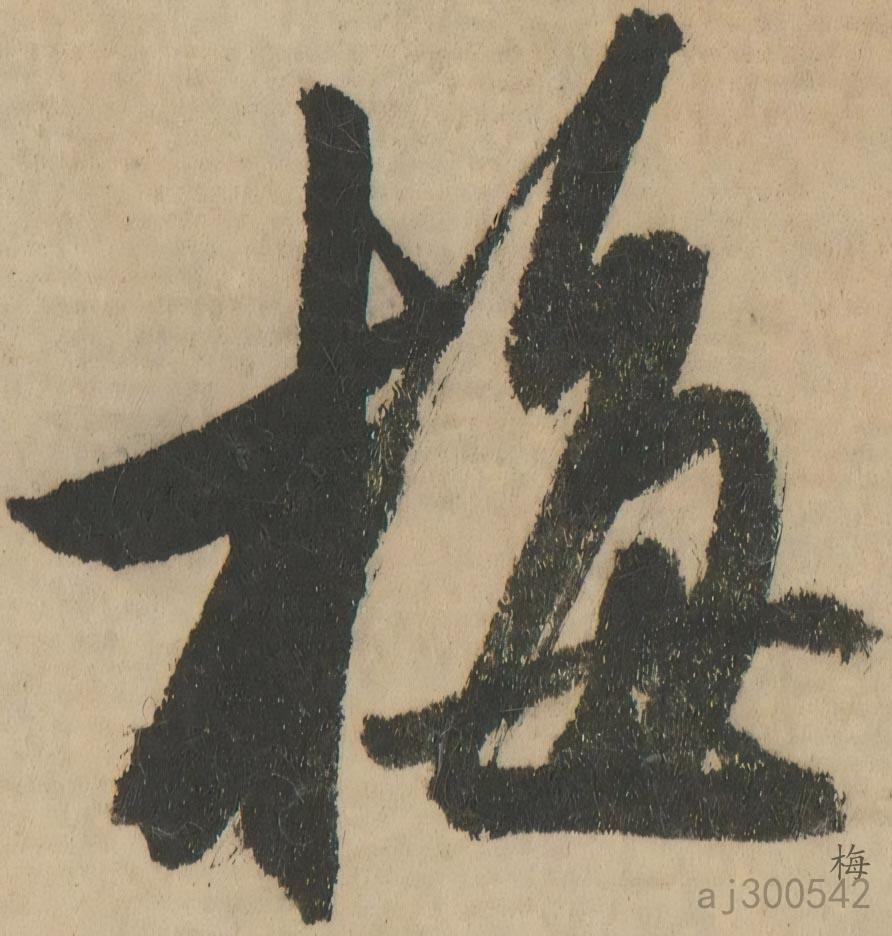 梅
梅
aj300542